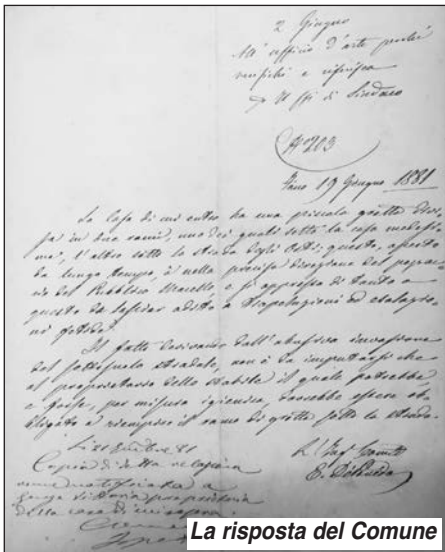 2 Giugno
All' ufficio d'arte perché
verifichi e riferisca
Il ff di Sindaco
N° 203
Fano 19 Giugno 1881
La Casa di cui entro ha una piccola grotta divi-
sa in due rami, uno dei quali sotto la casa medesi-
ma, l'altro sotto la strada degli Orti; questo, aperto
da lungo tempo, è nella precisa direzione del
del Pubblico Macello, e si appressa di tanto a
questo da lasciar adito a trapelazioni ed esalazio-
ni fetide.
Il fatto derivare dall'abusiva invasione
del sottosuolo stradale, non è da imputarsi che
al proprietario dello stabile il quale potrebbe
e forse, per misura igienica, dovrebbe essere ob-
bligato a riempire il ramo di grotta sotto la strada.
L' Ing
Copia di detta relazione
proprietaria
della casa di cui sopra
La risposta del Comune